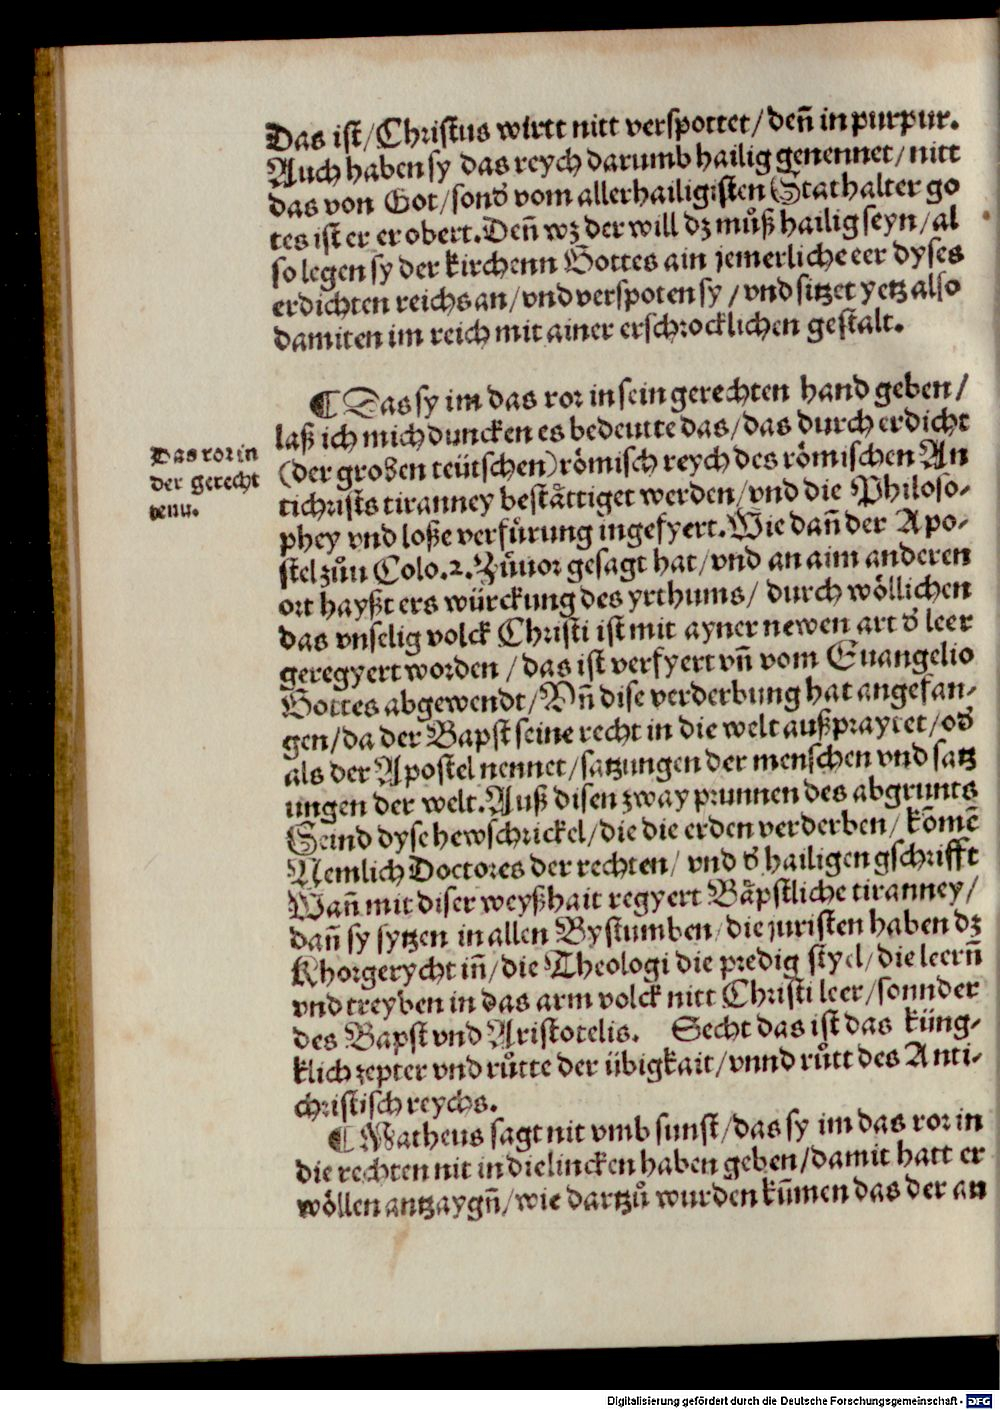 Das ist/Christus wirtt nitt verspottet/deñ in purpur.
Auch haben sy das reych darumb hailig genennet/nitt
das von Got/sond̕ vom allerhailigisten Stathalter go
tes ist er erobert. Deñ wz der will dz můß hailig seyn/al
so legen sy der kirchenn Gottes ain jemerliche eer dyses
erdichten reichs an/vnd verspoten sy/vnd sitzet yetz also
damiten im reich mit ainer erschrocklichen gestalt.
¶ Das sy im das ror in sein gerechten hand geben/
laß ich mich duncken es bedeutte das/das durch erdicht
Das ror in
der gerecht
tenn.
(der grossen teütschen) römisch reych des römischen An
tichrists tiranney bestättiget werden/vnd die Philoso⸗
phey vnd loße verfůrung ingefyert. Wie dañ der Apo⸗
stel zůn Colo.2. Zůuor gesagt hat/vnd an aim anderen
ort hayßt ers würckung des yrthums/durch wöllichen
das vnselig volck Christi ist mit ayner newen art d̕ leer
geregyert worden/das ist verfyert vñ vom Euangelio
Gottes abgewendt/Vñ dise verderbung hat angefan⸗
gen/da der Bapst seine recht in die welt außpraytet/od̕
als der Apostel nennet/satzungen der menschen vnd satz
ungen der welt. Auß disen zway prunnen des abgrunts
Seind dyse hewschrickel/die die erden verderben/kōmē
Nemlich Doctores der rechten/vnd d̕ hailigen gschrifft
Wañ mit diser weyßhait regyert Båpstliche tiranney/
dañ sy sytzen in allen Bystumben/die juristen haben dz
Khorgerycht iñ/die Theologi die predig styel/die leerñ
vnd treyben in das arm volck nitt Christi leer/sonnder
des Bapst vnd Aristotelis. Secht das ist das küng⸗
klich zepter vnd růtte der übigkait/vnnd růtt des Anti⸗
christisch reychs.
¶ Matheus sagt nit vmb sunst/das sy im das ror in
die rechten nit in die lincken haben geben/damit hatt er
wöllen antzaygñ/wie dartzů wurden kum̃en das der an
Digitalisierung gefördert durch die Deutsche Forschungsgemeinschaft - DFG